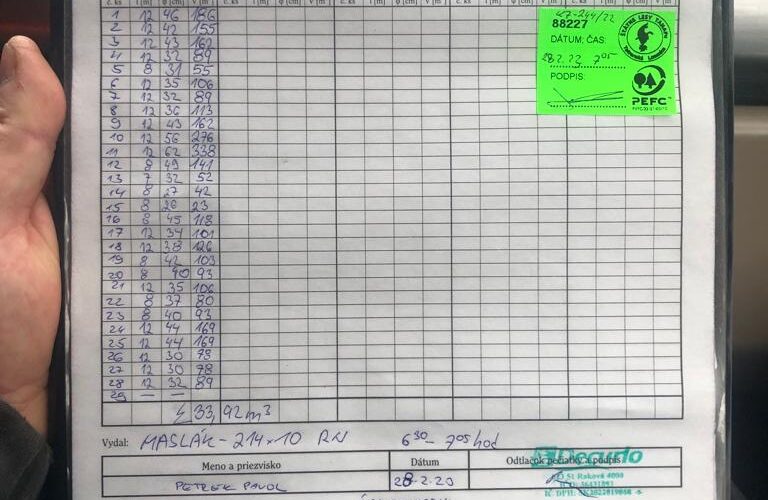 č. ks l [m] φ [cm] V [m³] č. ks l [m] φ [cm] V [m³] č. ks l [m] φ [cm] V [m³] č. ks l [m] φ [cm] V [m³] č. ks l [m] φ [cm] V [m³]
1 12 46 186
2 12 42 155
3 12 43 162
4 12 32 89
5 8 31 55
6 12 35 106
7 12 32 89
8 12 36 113
9 12 43 162
10 12 56 276
11 12 62 338
12 8 49 141
13 7 32 52
14 8 27 42
15 8 20 23
16 8 45 118
17 12 34 101
18 12 38 126
19 8 42 103
20 8 40 93
21 12 35 106
22 8 37 80
23 8 40 93
24 12 44 169
25 12 44 169
26 12 30 78
27 12 30 78
28 12 32 89
29 — —
Σ 33,92 m³
47-244/22
88227
DÁTUM; ČAS:
28.2.23 7⁰⁵
PODPIS:
ŠTÁTNE LESY TANAPU
Tatranská Lomnica
PEFC
Vydal: MASLÁK - 214×10 RN 6³⁰ - 7⁰⁵ hod
Meno a priezvisko Dátum Odtlačok pečiatky a podpis
PETREK PAVOL 28.2.23
Degudo
St. Raková 4000
IČO: 36431591
IČ DPH: SK2022019868